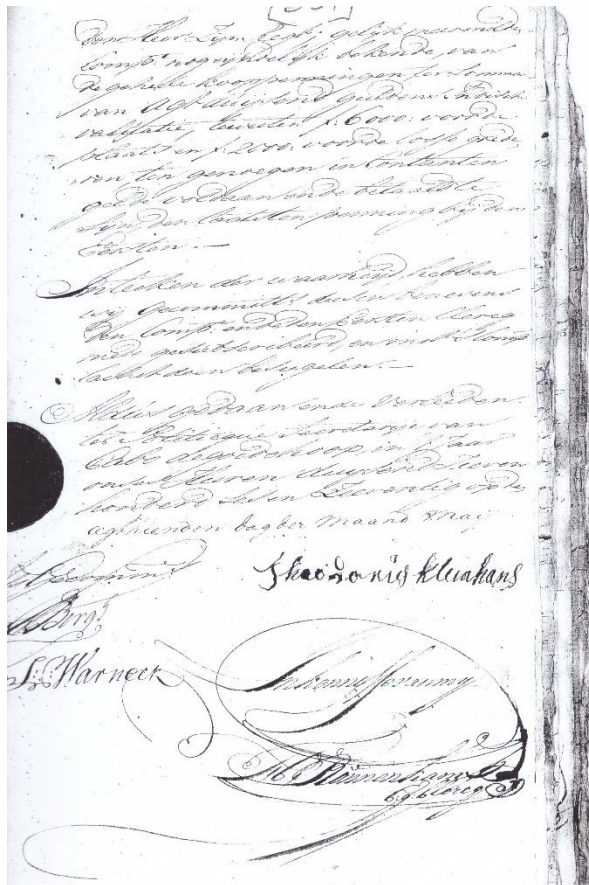 den Heer Zijn Eegh: gelijk
Comp:t nog eyndelijk bekende, van
de geheele kooppenningen ter Somma
van agt duijzend guldens Indisch
valuatie, te weeten f: 6000: voor de
plaats en f: 2000: voor de losse goede=
=ren ten genoegen in Contanten
gelde voldaan ende betaald te
Zijn, den laatsten penning bij den
Eersten.—
In teeken der waarheijd hebben
wij gecommitt:s deesen benevens
den Comp:t ende den Eersten Clercq
mede gesubscribeerd, en met 's Comp:
laten besegelen.—
Aldus gedaan ende verleeden
ter Politicque Secretarije van
Cabo de goede hoop, in 't Jaar
onses Heeren duijzend Seeven
honderd Ses en Zeventig op de
agtienden dag der maand Maij
Theodorus Kleinhans
Bergh
L: Warneck
Gg Clercq